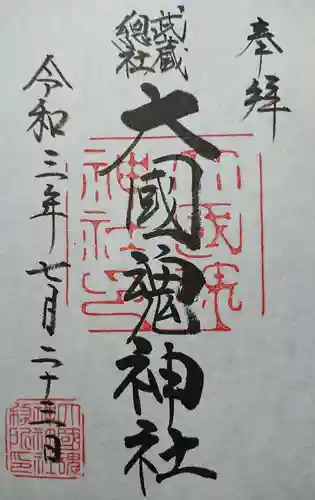 奉拝
武蔵
總社
大國魂神社
令和三年七月二十三日